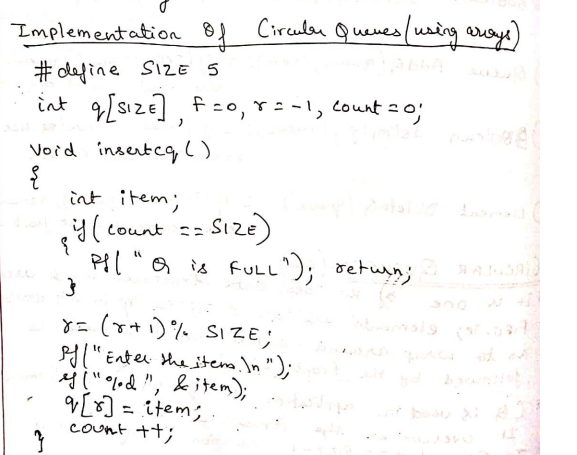 Implementation Of Circular Queues (using arrays)
#define SIZE 5
int q[SIZE], f=0, r=-1, count=0;
void insertcq()
{
int item;
if (count == SIZE)
{
Pf("Q is FULL"); return;
}
r = (r+1) % SIZE;
Pf("Enter the item.\n");
sf("%d", &item);
q[r] = item;
count ++;
}